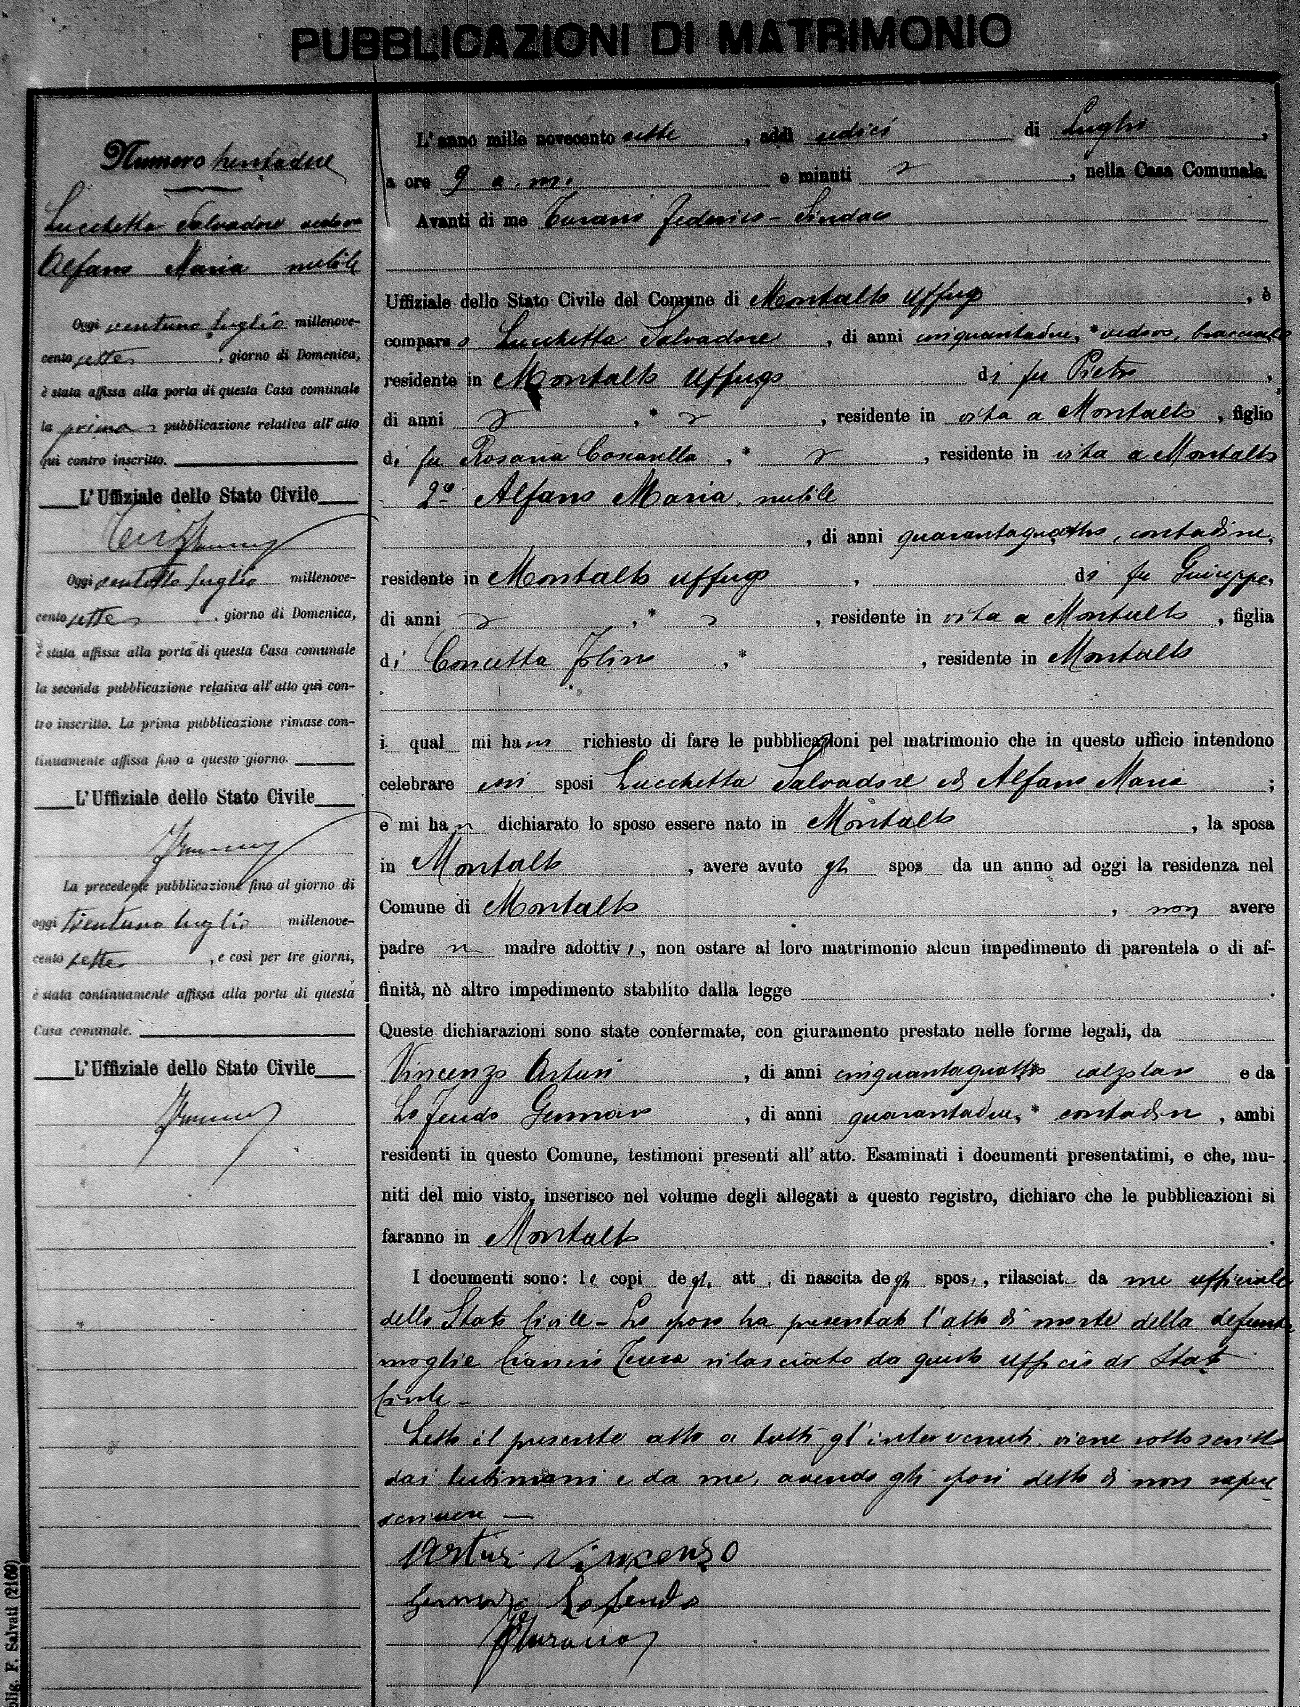 PUBBLICAZIONI DI MATRIMONIO
Numero trentadue
Lucchetta Salvadore vedovo
Alfano Maria nubile
Oggi ventuno luglio millenove-
cento sette, giorno di Domenica,
è stata affissa alla porta di questa Casa comunale
la prima pubblicazione relativa all'atto
quì contro inscritto.
L'Uffiziale dello Stato Civile
Oggi ventotto luglio millenove-
cento sette, giorno di Domenica,
è stata affissa alla porta di questa Casa comunale
la seconda pubblicazione relativa all'atto quì con-
tro inscritto. La prima pubblicazione rimase con-
tinuamente affissa fino a questo giorno.
L'Uffiziale dello Stato Civile
La precedente pubblicazione fino al giorno di
oggi trentuno luglio millenove-
cento sette, e così per tre giorni,
è stata continuamente affissa alla porta di questa
Casa comunale.
L'Uffiziale dello Stato Civile
L'anno mille novecento sette, addì di Luglio,
a ore 9 a. m. e minuti, nella Casa Comunale.
Avanti di me Federico - Sindaco
Uffiziale dello Stato Civile del Comune di Montalto Uffugo, è
comparso Lucchetta Salvadore, di anni cinquantadue, vedovo, bracciale
residente in Montalto Uffugo di fu Pietro,
di anni, residente in vita a Montalto, figlio
di fu Rosaria, residente in vita a Montalto
2° Alfano Maria, nubile
, di anni quarantaquattro, contadina,
residente in Montalto Uffugo, di fu Giuseppe,
di anni, residente in vita a Montalto, figlia
di Concetta, residente in Montalto
i qual mi hann richiesto di fare le pubblicazioni pel matrimonio che in questo ufficio intendono
celebrare essi sposi Lucchetta Salvadore ed Alfano Maria ;
e mi han dichiarato lo sposo essere nato in Montalto, la sposa
in Montalto, avere avuto gli sposi da un anno ad oggi la residenza nel
Comune di Montalto, non avere
padre n madre adottivi, non ostare al loro matrimonio alcun impedimento di parentela o di af-
finità, nè altro impedimento stabilito dalla legge .
Queste dichiarazioni sono state confermate, con giuramento prestato nelle forme legali, da
Vincenzo Artusi, di anni cinquantaquattro calzolaio e da
Lo Feudo Gennaro, di anni quarantadue, * contadin, ambi
residenti in questo Comune, testimoni presenti all'atto. Esaminati i documenti presentatimi, e che, mu-
niti del mio visto, inserisco nel volume degli allegati a questo registro, dichiaro che le pubblicazioni si
faranno in Montalto .
I documenti sono: le copi degli att di nascita degli sposi, rilasciat da me ufficiale
dello Stato Civile - Lo sposo ha presentato l'atto di morte della defunta
moglie Teresa rilasciato da questo ufficio di Stato
Civile -
Letto il presente atto a tutti gl'intervenuti viene sottoscritto
dai testimoni e da me, avendo gli sposi detto di non sapere
scrivere -
Artusi Vincenzo
Gennaro Lo feudo
olig. F. Salvati (2169)